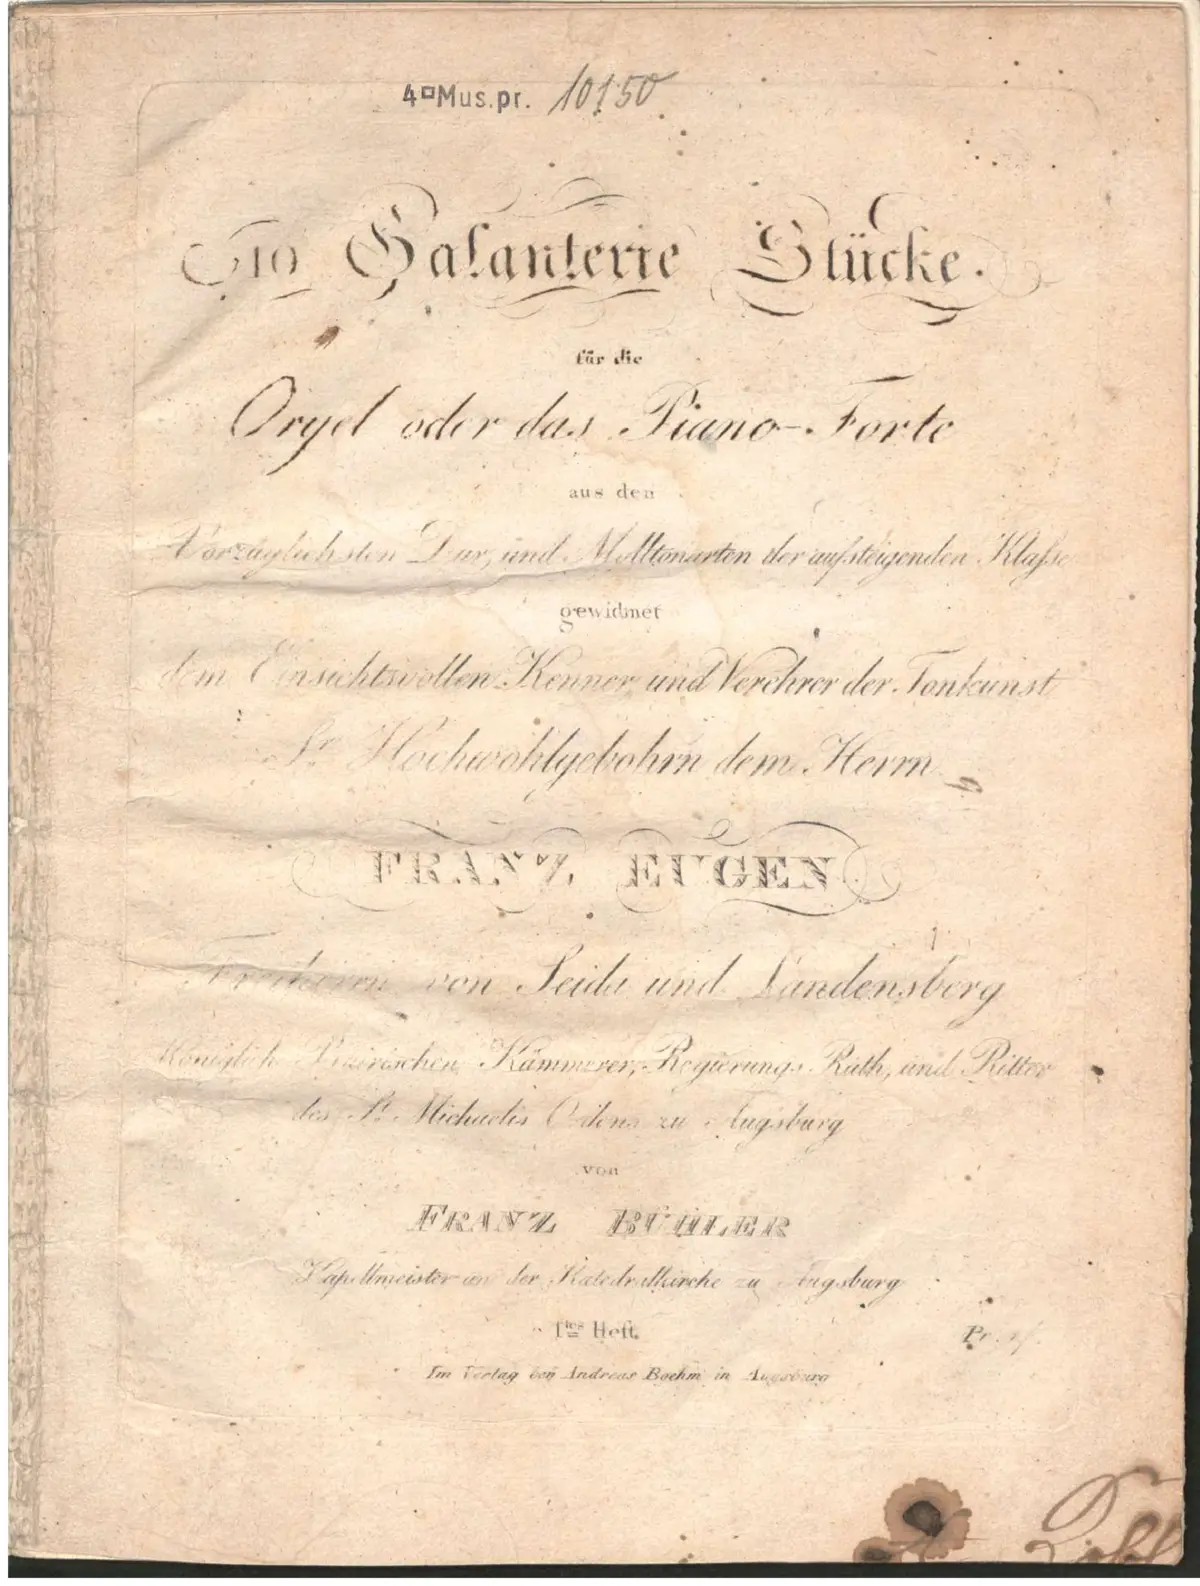 4°Mus.pr. 10150
Galanterie Stücke.
für die
Orgel oder das Piano-Forte
aus den
Vorzüglichsten Dur, und Molltonarten der aufsteigenden Klasse
gewidmet
dem Einsichtsvollen Kenner und Verehrer der Tonkunst
Sr. Hochwohlgebohrn dem Herrn
FRANZ EUGEN
Freiherrn von Seida und Landensberg
Königlich Bairischen Kämmerer, Regierungs Rath, und Ritter
des St. Michaelis Ordens zu Augsburg
von
FRANZ BÜHLER
Kapellmeister an der Katedralkirche zu Augsburg
1tes Heft.
Pr.
Im Verlag beÿ Andreas Boehm in Augsburg